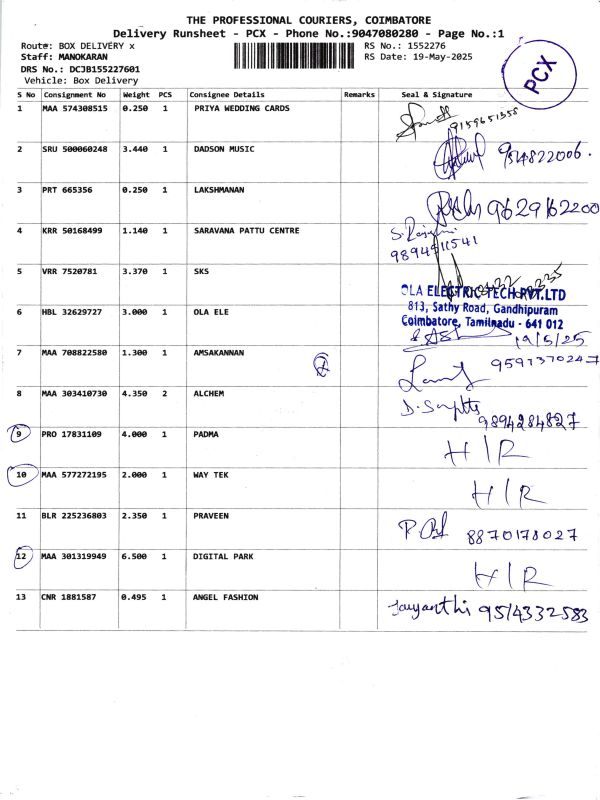 THE PROFESSIONAL COURIERS, COIMBATORE
Delivery Runsheet - PCX - Phone No.:9047080280 - Page No.:1
Route: BOX DELIVERY x RS No.: 1552276
Staff: MANOKARAN RS Date: 19-May-2025
DRS No.: DCJB155227601
Vehicle: Box Delivery
PCX
S No Consignment No Weight PCS Consignee Details Remarks Seal & Signature
1 MAA 574308515 0.250 1 PRIYA WEDDING CARDS
9159651358
2 SRU 500060248 3.440 1 DADSON MUSIC 9514822006.
3 PRT 665356 0.250 1 LAKSHMANAN 9629162200
4 KRR 50168499 1.140 1 SARAVANA PATTU CENTRE
9894911541
5 VRR 7520781 3.370 1 SKS
OLA ELECTRIC TECH PVT.LTD
6 HBL 32629727 3.000 1 OLA ELE 813, Sathy Road, Gandhipuram
Coimbatore, Tamilnadu - 641 012
19/5/25
7 MAA 708822580 1.300 1 AMSAKANNAN 9597370247
8 MAA 303410730 4.350 2 ALCHEM
9894284827
9 PRO 17831109 4.000 1 PADMA H/R
10 MAA 577272195 2.000 1 WAY TEK H/R
11 BLR 225236803 2.350 1 PRAVEEN 8870178027
12 MAA 301319949 6.500 1 DIGITAL PARK H/R
13 CNR 1881587 0.495 1 ANGEL FASHION Jayanthi 9514332583